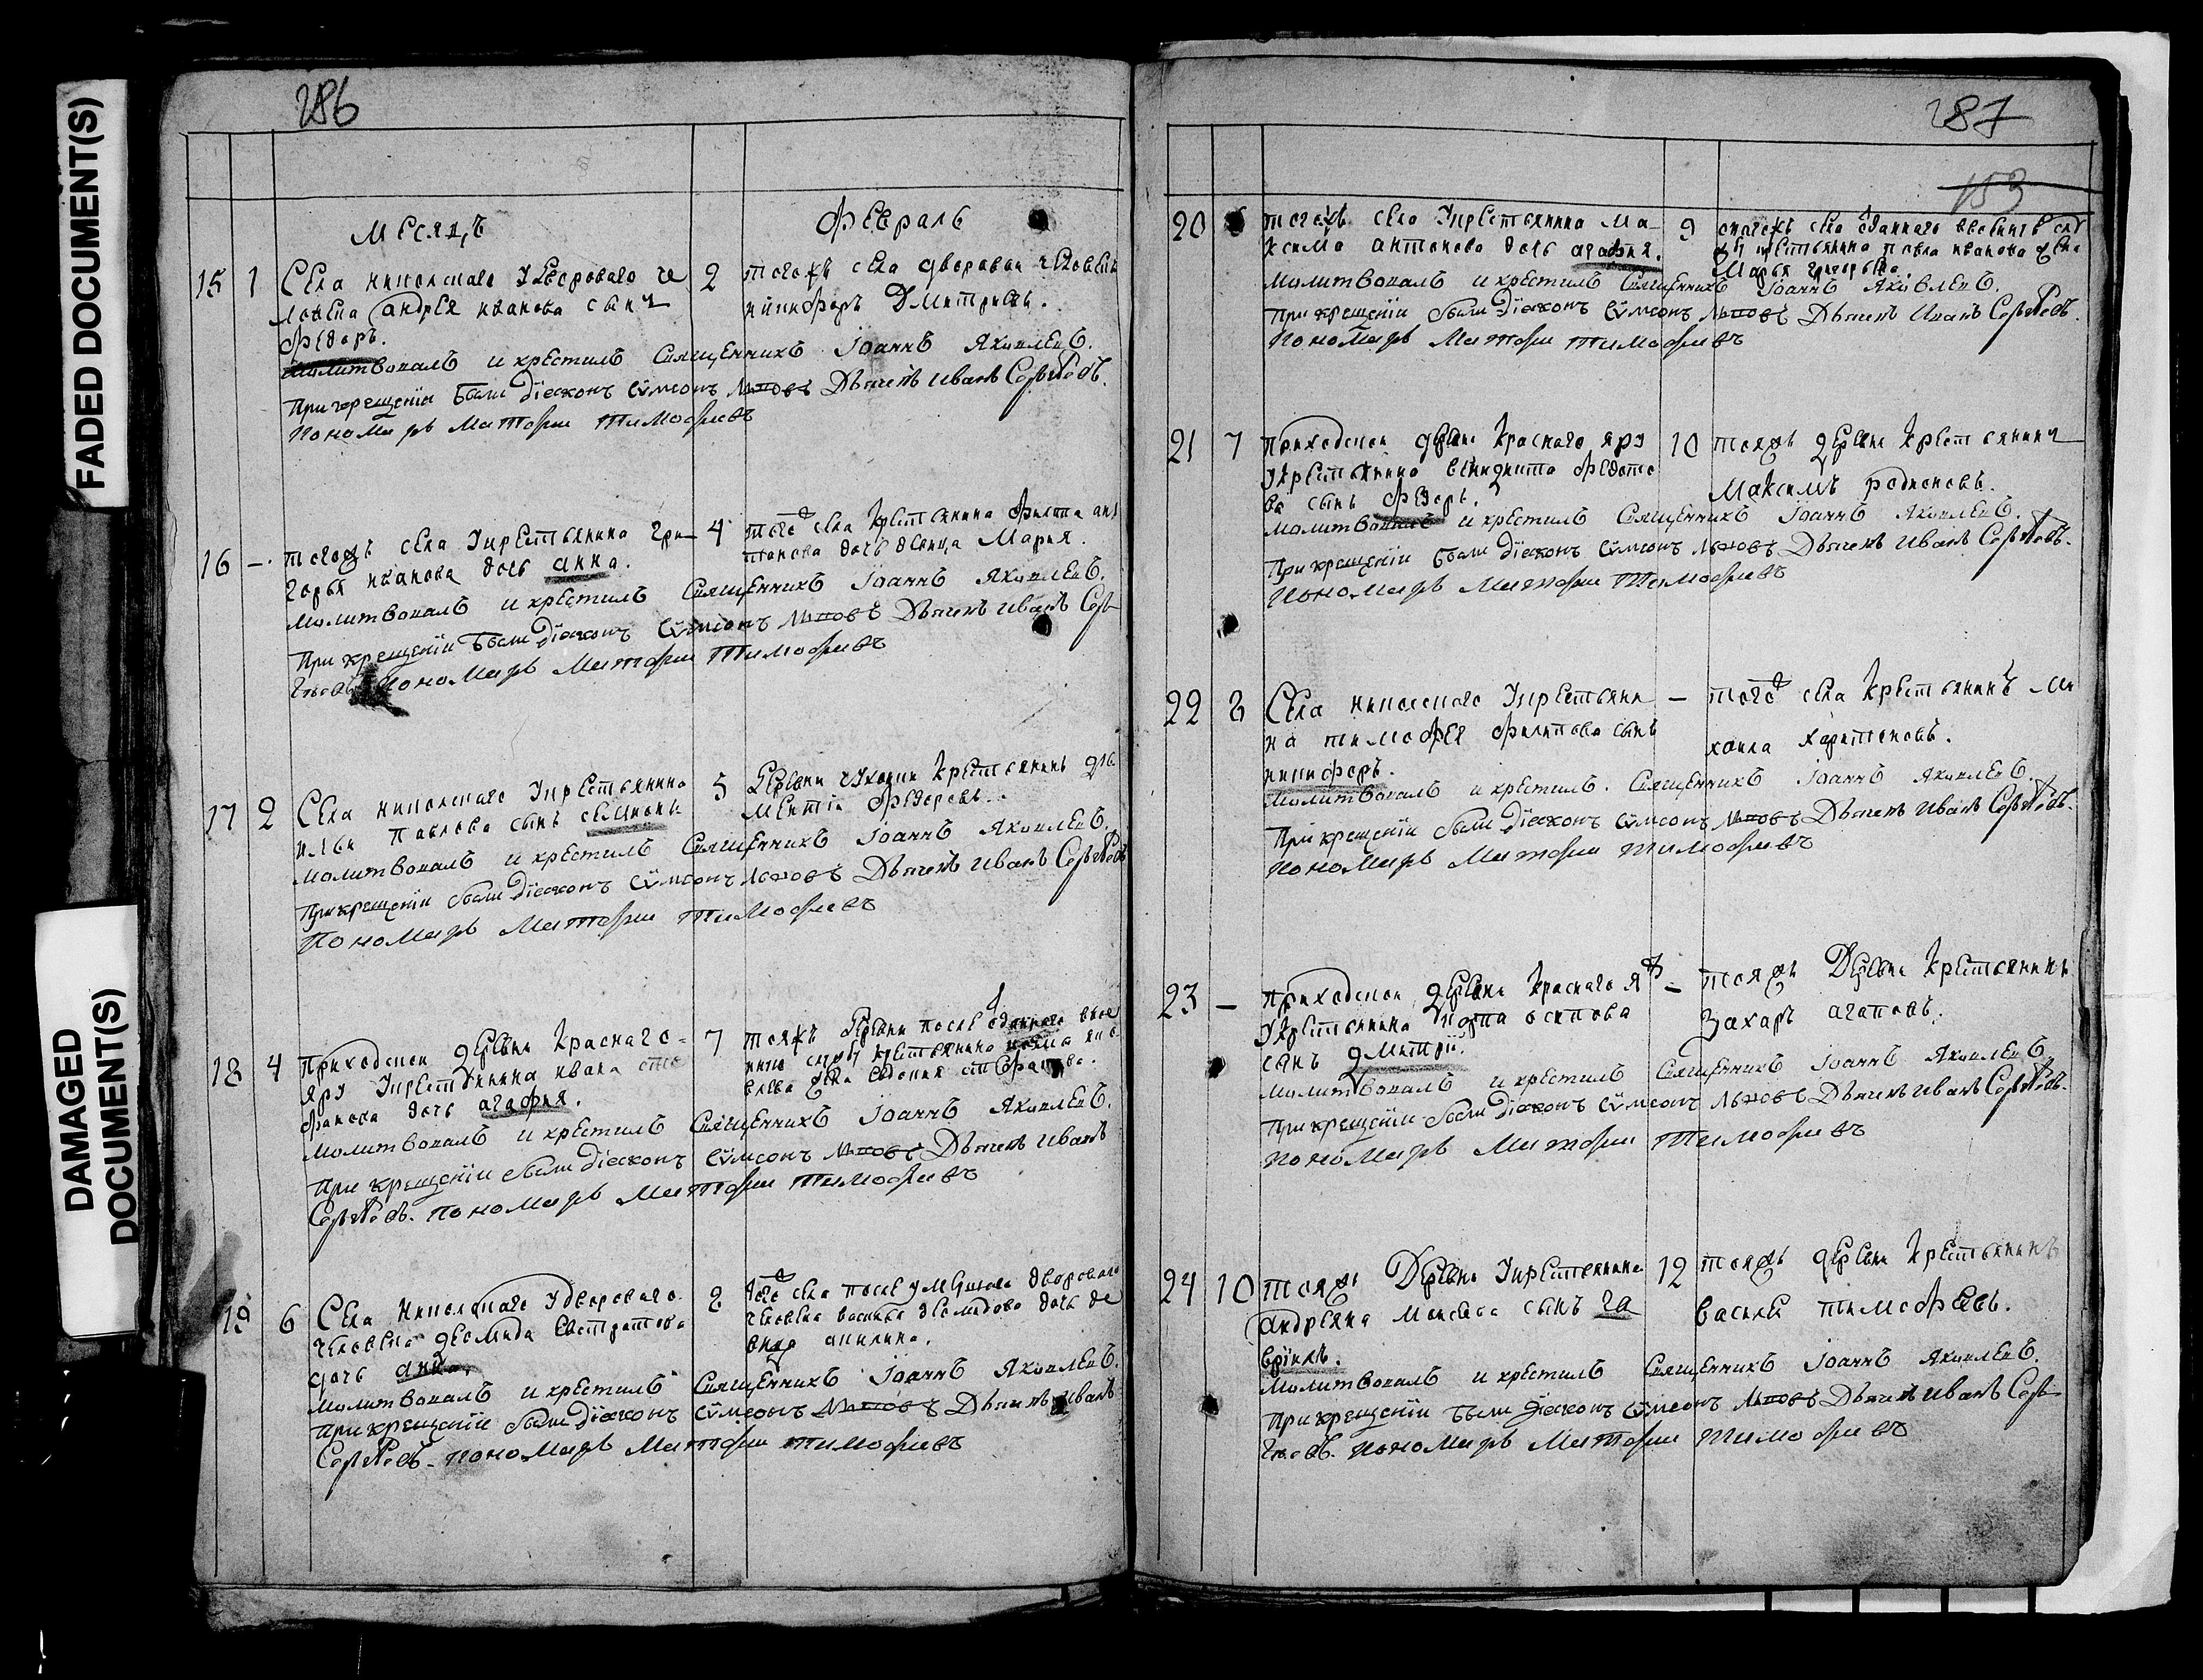 FADED DOCUMENT(S)
DAMAGED
DOCUMENT(S)
286
Месяцъ
Февраль
15 1 Села никольскаго удвороваго че
ловека андрея иванова сынъ
федоръ.
2 тогожъ села дворовои человекъ
никифоръ Дмитриевъ.
молитвовалъ и крестилъ Священникъ Іоаннъ Яковлевъ.
При крещеніи были діаконъ Сѵмеонъ Дьячекъ Иванъ Сергѣевъ.
Пономарь Матфеи Тимофеевъ
16 —. тогожъ села укрестьянина гри
горья иванова дочь анна.
4 того села крестьянина филипа ан
тонова дочь девица Мария.
молитвовалъ и крестилъ Священникъ Іоаннъ Яковлевъ.
При крещеніи были діаконъ Сѵмеонъ Дьячекъ Иванъ Сер
гѣевъ Пономарь Матфеи Тимофеевъ
17 2 Села никольскаго укрестьянина
ильи Павлова сынъ
5 Деревни крестьянинъ
Федоровъ.
молитвовалъ и крестилъ Священникъ Іоаннъ Яковлевъ.
При крещеніи были діаконъ Сѵмеонъ Дьячекъ Иванъ Сергѣевъ
Пономарь Матфеи Тимофеевъ
18 4 Приходскои деревни Краснаго
яру укрестьянина ивана
дочь агафия.
7 тояжъ деревни после отданнаго
крестьянина
жена евдокия
молитвовалъ и крестилъ Священникъ Іоаннъ Яковлевъ.
При крещеніи были діаконъ Сѵмеонъ Дьячекъ Иванъ
Сергѣевъ. пономарь Матфеи Тимофеевъ
19 6 Села Никольскаго удвороваго
человека диомида Евстратова
дочь анна.
8 того села после умершаго двороваго
человека василья диомидова дочь де
вица акилина.
молитвовалъ и крестилъ Священникъ Іоаннъ Яковлевъ.
При крещеніи были діаконъ Сѵмеонъ Дьячекъ Иванъ
Сергѣевъ. пономарь Матфеи Тимофеевъ
287
153
20 тогожъ села укрестьянина ма
ксима антонова дочь агафия.
9 тогожъ села отданнаго
крестьянина павла иванова жена
Марья григорьева.
молитвовалъ и крестилъ Священникъ Іоаннъ Яковлевъ.
При крещеніи были діаконъ Сѵмеонъ Дьячекъ Иванъ Сергѣевъ.
Пономарь Матфеи Тимофеевъ
21 7 Приходскои деревни Краснаго яру
укрестьянина венидикта федото
ва сынъ федоръ.
10 тояжъ деревни крестьянинъ
Максимъ родионовъ.
молитвовалъ и крестилъ Священникъ Іоаннъ Яковлевъ.
При крещеніи были діаконъ Сѵмеонъ Дьячекъ Иванъ Сергѣевъ.
Пономарь Матфеи Тимофеевъ
22 8 Села никольскаго укрестьяни
на тимофея филипова сынъ
никифоръ.
— того села крестьянинъ ми
хаила харитоновъ.
молитвовалъ и крестилъ. Священникъ Іоаннъ Яковлевъ.
При крещеніи были діаконъ Сѵмеонъ Дьячекъ Иванъ Сергѣевъ.
Пономарь Матфеи Тимофеевъ
23 — Приходскои деревни Краснаго яр
укрестьянина осипова
сынъ дмитрїй.
— тояжъ Деревни крестьянинъ
Захаръ агаповъ.
молитвовалъ и крестилъ Священникъ Іоаннъ Яковлевъ
При крещеніи были діаконъ Сѵмеонъ Дьячекъ Иванъ Сергѣевъ.
Пономарь Матфеи Тимофеевъ
24 10 тояжъ Деревни укрестьянина
андреяна Моисеева сынъ га
врїилъ.
12 тояжъ деревни крестьянинъ
василеи тимофеевъ.
молитвовалъ и крестилъ Священникъ Іоаннъ Яковлевъ.
При крещеніи были діаконъ Сѵмеонъ Дьячекъ Иванъ Сер
гѣевъ. Пономарь Матфеи Тимофеевъ